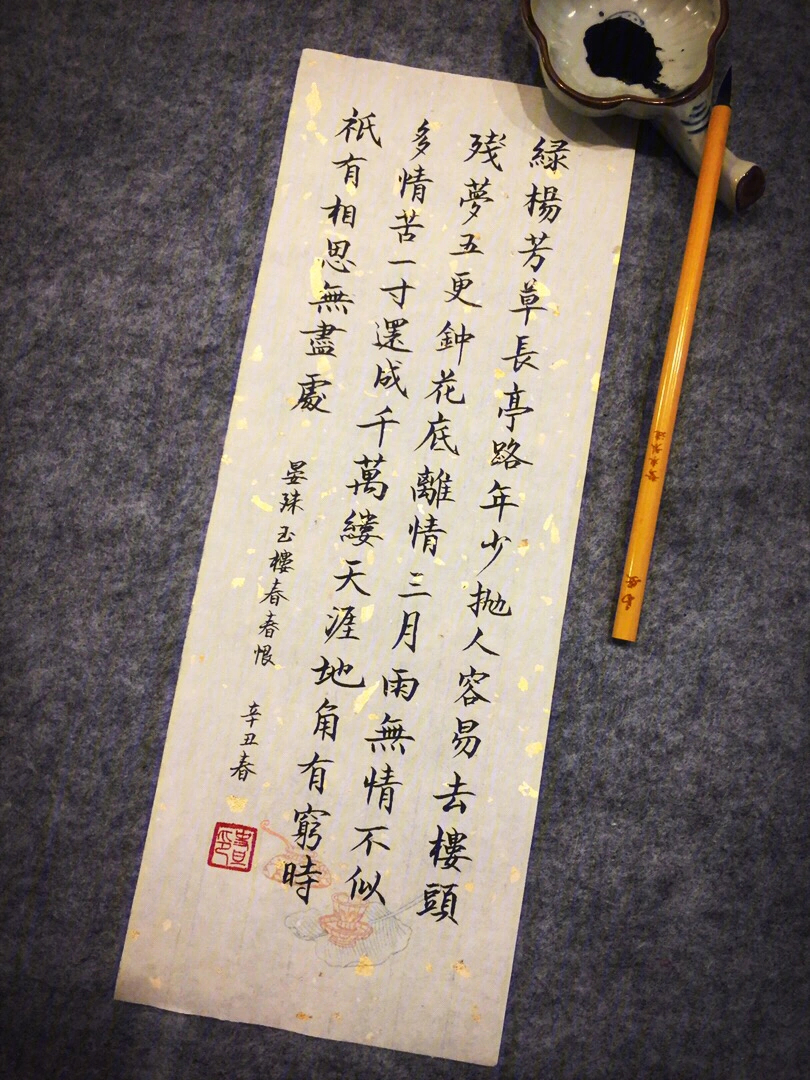 緑楊芳草長亭路年少抛人容易去樓頭
残夢五更鈡花底離情三月雨無情不似
多情苦一寸還成千萬縷天涯地角有窮時
祇有相思無盡處
晏殊玉樓春春恨
辛丑春